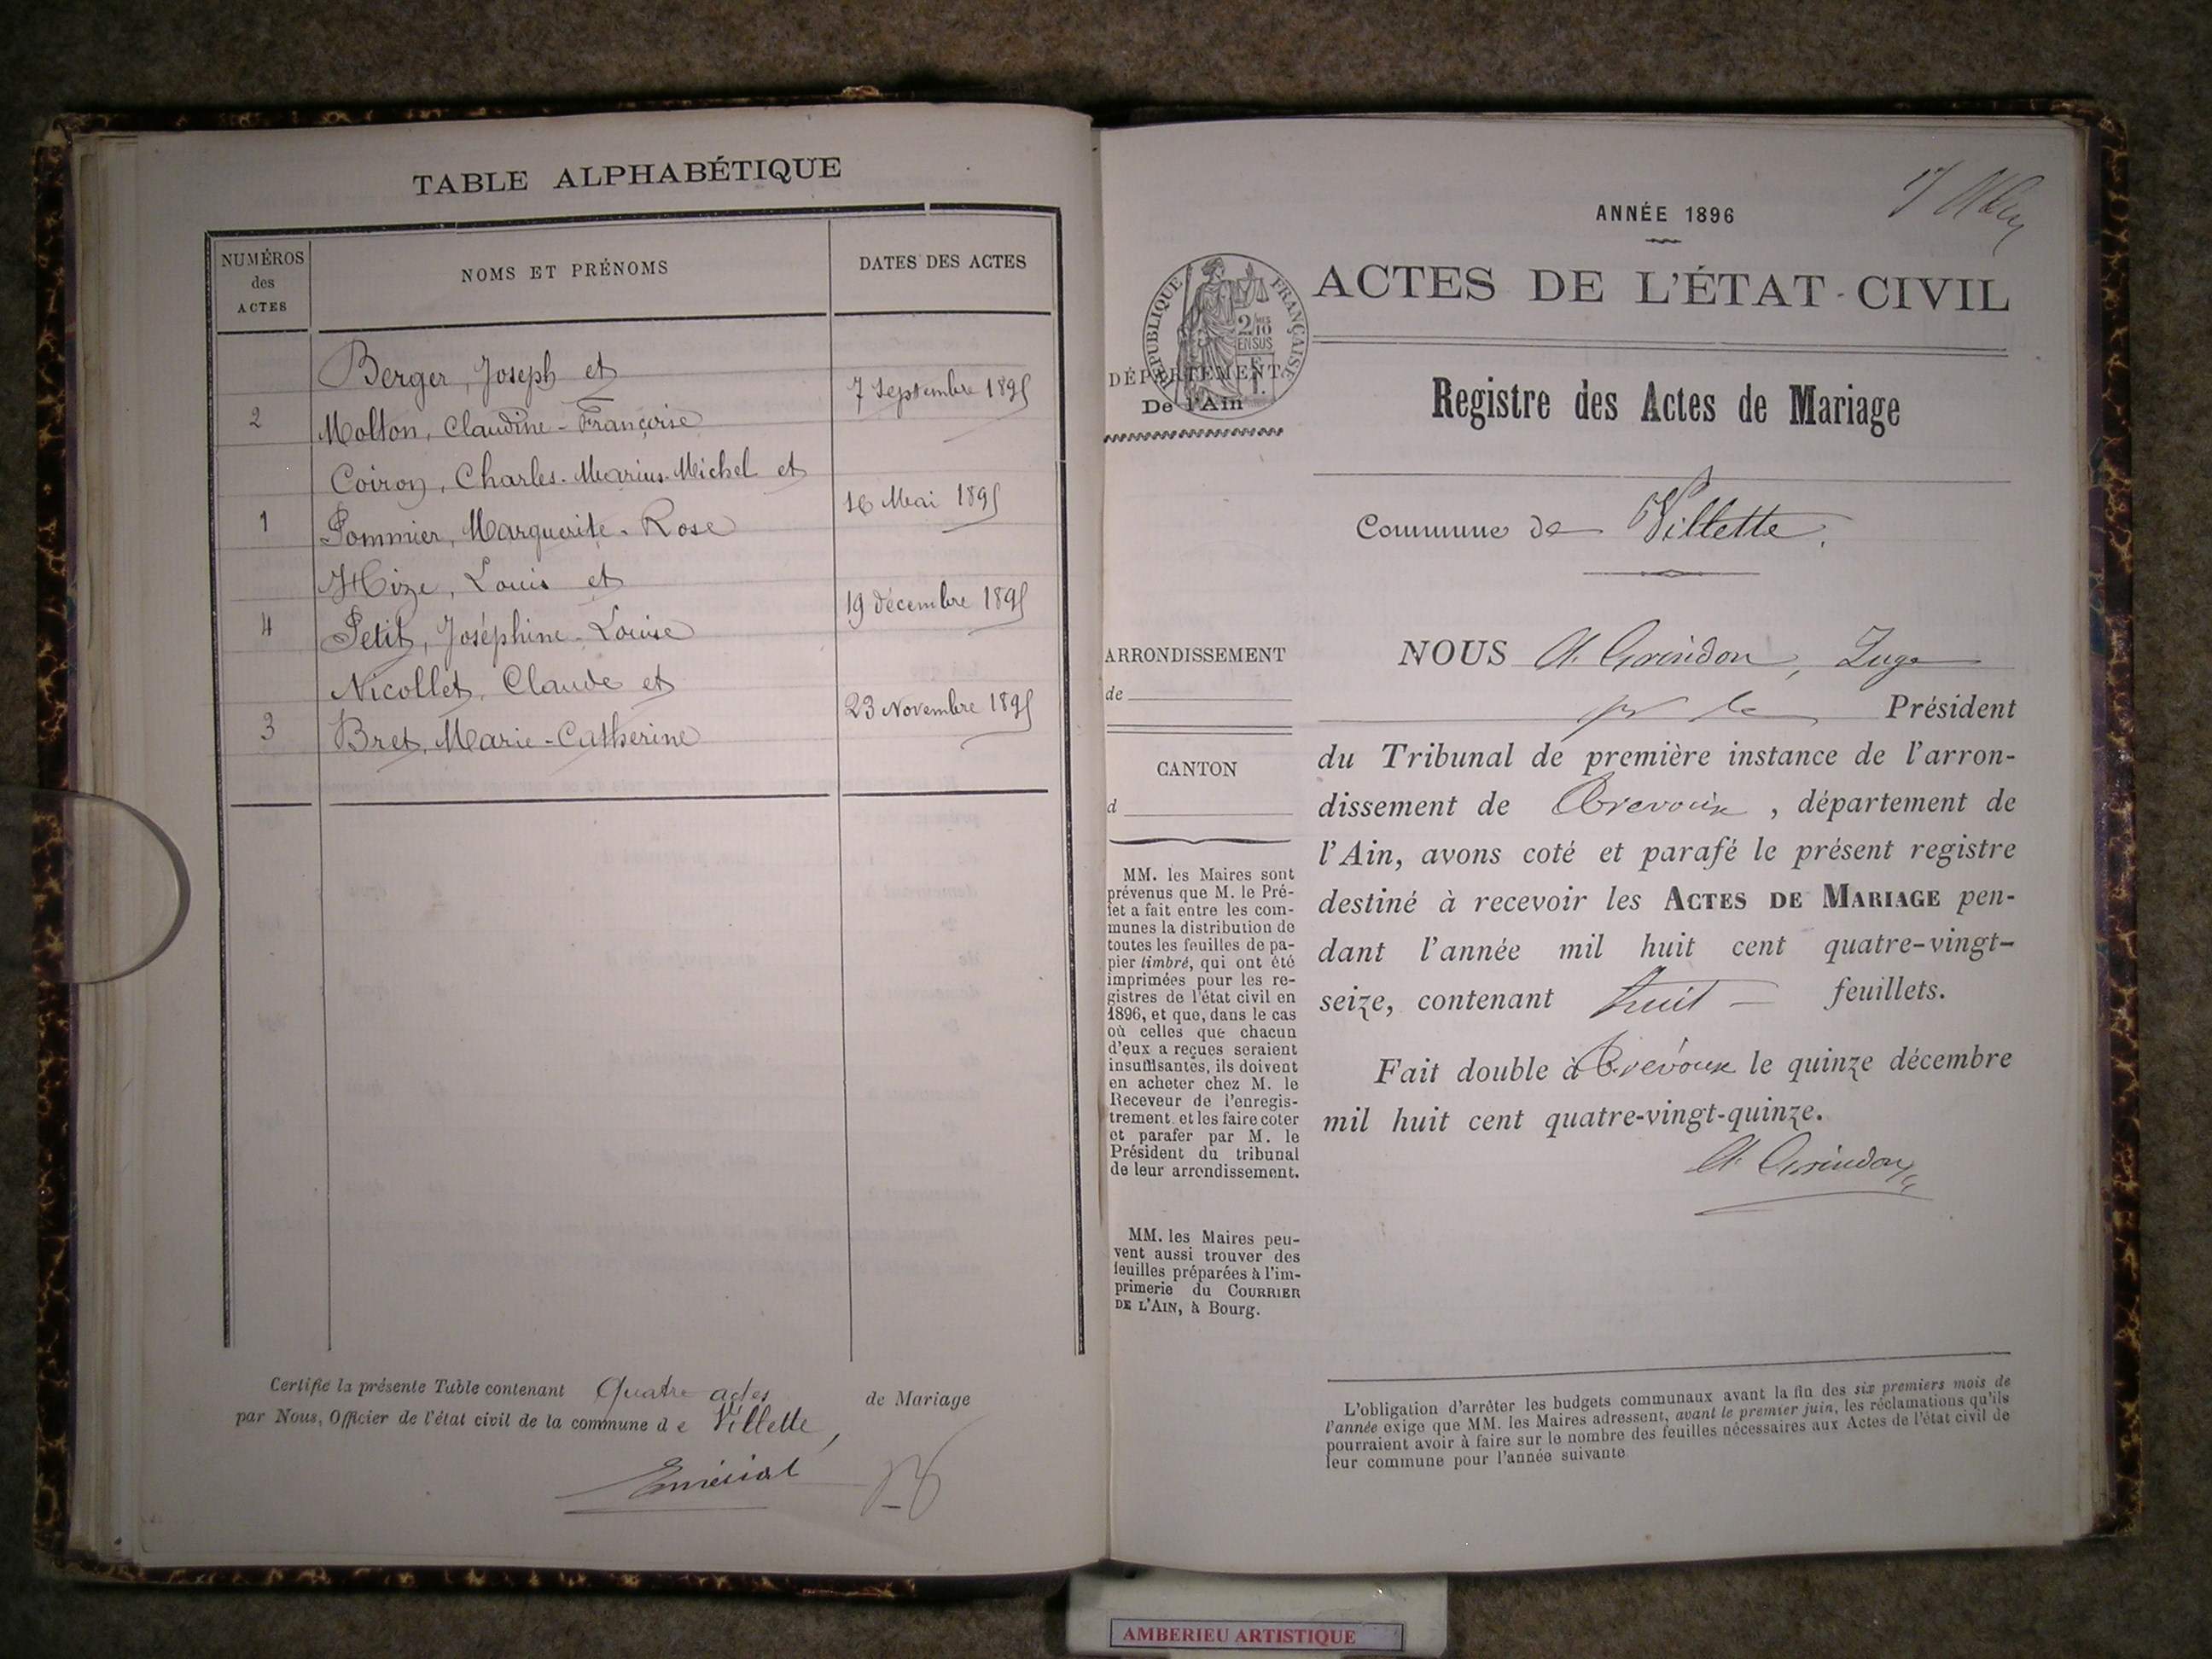 TABLE ALPHABÉTIQUE
NUMÉROS
des
ACTES
NOMS ET PRÉNOMS
DATES DES ACTES
Berger, Joseph et
2 Molton, Claudine-Françoise
7 Septembre 1895
Coiron, Charles-Marius-Michel et
1 Pommier, Marguerite-Rose
16 Mai 1895
Hize, Louis et
4 Petit, Joséphine-Louise
19 décembre 1895
Nicollet, Claude et
3 Bret, Marie-Catherine
23 Novembre 1895
Certifié la présente Table contenant Quatre actes de Mariage
par Nous, Officier de l'état civil de la commune de Villette,
ANNÉE 1896
ACTES DE L'ÉTAT-CIVIL
RÉPUBLIQUE FRANÇAISE
2/10
EN SUS
DÉPARTEMENT
De l'Ain
Registre des Actes de Mariage
Commune de Villette.
ARRONDISSEMENT
de
CANTON
d
MM. les Maires sont
prévenus que M. le Pré-
fet a fait entre les com-
munes la distribution de
toutes les feuilles de pa-
pier timbré, qui ont été
imprimées pour les re-
gistres de l'état civil en
1896, et que, dans le cas
où celles que chacun
d'eux a reçues seraient
insuffisantes, ils doivent
en acheter chez M. le
Receveur de l'enregis-
trement et les faire coter
et parafer par M. le
Président du tribunal
de leur arrondissement.
MM. les Maires peu-
vent aussi trouver des
feuilles préparées à l'im-
primerie du COURRIER
DE L'AIN, à Bourg.
NOUS A. Grindon, Juge
pr le Président
du Tribunal de première instance de l'arron-
dissement de Trévoux, département de
l'Ain, avons coté et parafé le présent registre
destiné à recevoir les ACTES DE MARIAGE pen-
dant l'année mil huit cent quatre-vingt-
seize, contenant huit feuillets.
Fait double à Trévoux le quinze décembre
mil huit cent quatre-vingt-quinze.
A. Grindon
L'obligation d'arrêter les budgets communaux avant la fin des six premiers mois de
l'année exige que MM. les Maires adressent, avant le premier juin, les réclamations qu'ils
pourraient avoir à faire sur le nombre des feuilles nécessaires aux Actes de l'état civil de
leur commune pour l'année suivante
AMBERIEU ARTISTIQUE